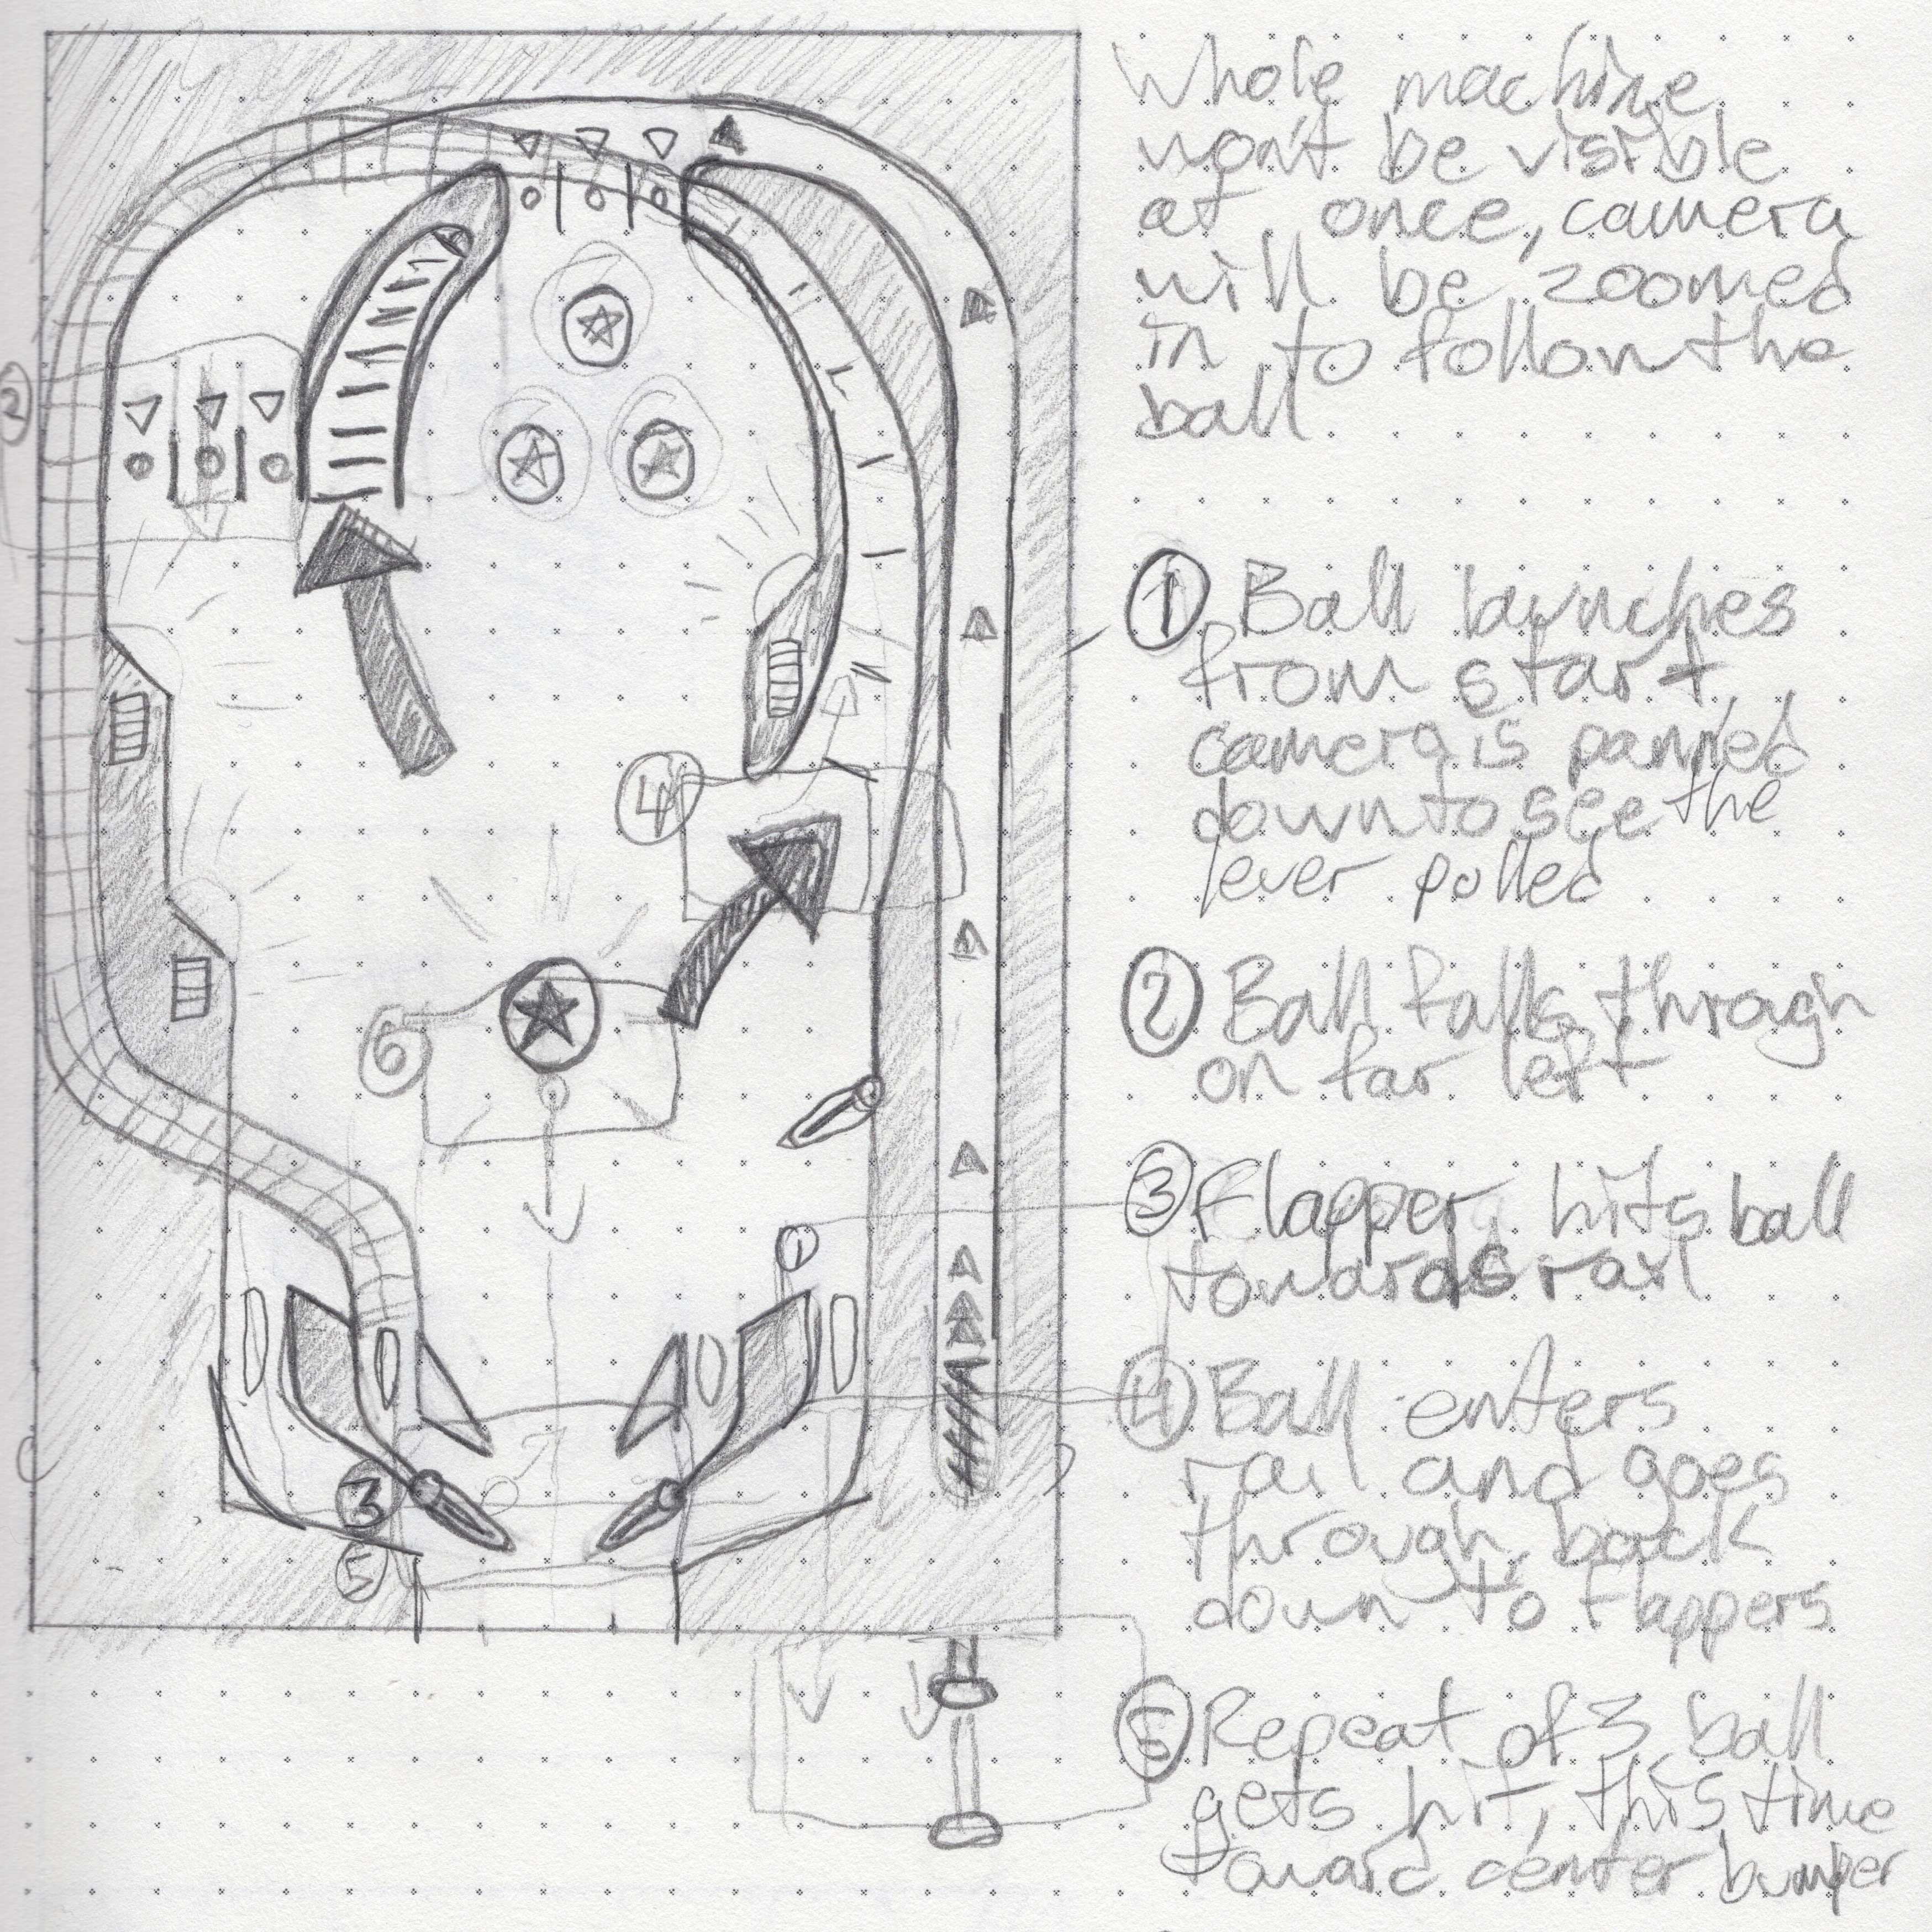 Whole machine
won't be visible
at once, camera
will be zoomed
in to follow the
ball
① Ball launches
from start,
camera is panned
down to see the
lever polled
② Ball falls throagh
on far left
③ Flapper hits ball
towards rail
④ Ball enters
rail and goes
through back
down to flappers
⑤ Repeat of 3, ball
gets hit, this time
toward center bumper
2
4
6
1
3
5